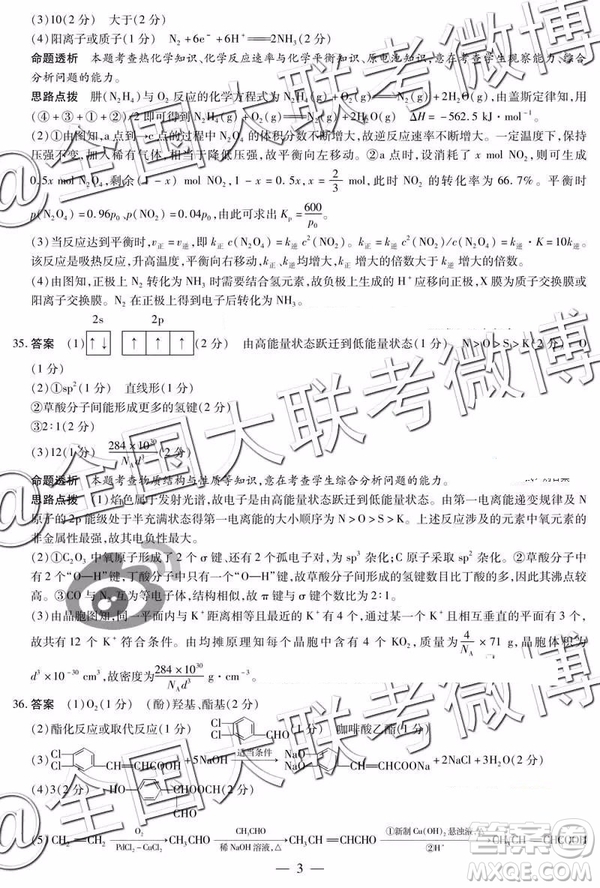 (3)10(2分) 大于(2分)
(4)阳离子或质子(1分) N₂+6e⁻+6H⁺══2NH₃(2分)
命题透析 本题考查热化学知识、化学反应速率与化学平衡知识、原电池知识,意在考查学生观察能力、综合
分析问题的能力。
思路点拨 肼(N₂H₄)与O₂反应的化学方程式为N₂H₄(g)+O₂(g)══N₂(g)+2H₂O(g),由盖斯定律知,用
(④+③+①-②)得N₂H₄(g)+O₂(g)══N₂(g)+2H₂O(g) ΔH=-562.5 kJ·mol⁻¹。
(2)①由图知,a点到c点的过程中N₂O₄的体积分数不断增大,故逆反应速率不断增大。一定温度下,保持
压强不变,再加入稀有气体,相当于降低压强,故平衡向左移动。②a点时,设消耗了x mol NO₂,则可生成
0.5x mol N₂O₄,剩余(1-x) mol NO₂,则1-x=0.5x,x=2/3 mol,此时NO₂的转化率为66.7%。平衡时
p(N₂O₄)=0.96p₀,p(NO₂)=0.04p₀,由此可求出Kₚ=600/p₀。
(3)当反应达到平衡时,v正=v逆,即k正 c(N₂O₄)=k逆 c²(NO₂),k正=k逆 c²(NO₂)/c(N₂O₄)=k逆·K=10k逆。
该反应是吸热反应,升高温度,平衡向右移动,k正增大的倍数大于k逆增大的倍数。
(4)由图知,正极上N₂转化为NH₃时需要结合氢元素,故负极上生成的H⁺应移向正极,X膜为质子交换膜或
阳离子交换膜。N₂在正极上得到电子后转化为NH₃。
35.答案 (1) 2s 2p ↑↓ ↑ ↑ ↑ (2分) 由高能量状态跃迁到低能量状态(1分) N>O>S>K(2分) O
(1分)
(2)①sp²(1分) 直线形(1分)
②草酸分子间能形成更多的氢键(2分)
③2:1(2分)
(3)12(1分) 284×10³⁰/N_A d³(2分)
命题透析 本题考查物质结构与性质等知识,意在考查学生综合分析问题的能力。
思路点拨 (1)焰色属于发射光谱,故电子是由高能量状态跃迁到低能量状态。由第一电离能递变规律及N
原子的2p能级处于半充满状态得第一电离能的大小顺序为N>O>S>K。上述四种元素的单质中氧元素的
非金属性最强,故其电负性最大。
(3)由晶胞图知,同一平面内与K⁺距离相等,且最近的K⁺有4个,通过某一K⁺且相互垂直的平面有3个,
故共有12个K⁺符合条件。由均摊原理知每个晶胞中含有4个K⁺、4个KO₂,质量为4/N_A×71 g,晶胞体积为
d³×10⁻³⁰ cm³,故密度为284×10³⁰/N_A d³ g·cm⁻³。
36.答案 (1)O₂(1分) (酚)羟基、酯基(2分)
(2)酯化反应或取代反应(1分) 咖啡酸乙酯(1分)
(3) Cl Cl CH=CHCOOH +5NaOH 适当条件 NaO NaO CH=CHCOONa +2NaCl+3H₂O(2分)
(4)3(2分)
(5)CH₂=CH₂ O₂ PdCl₂-CuCl₂ CH₃CHO CH₃CHO 稀NaOH溶液,△ CH₃CH=CHCHO ①新制Cu(OH)₂悬浊液,△ ②H⁺ CH₃CH=CHCOOH
3
@全国大联考微博
答案圈
MXQE.COM